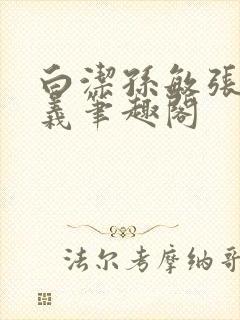 白潔孫敏張
義筆趣閣
法尔考摩纳哥